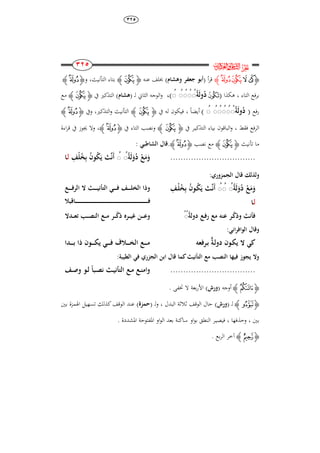 ٣٢٥
٣٢٥
﴿ كَيْ لَا يَكُونَ دُولَةً ﴾ قرأ (أبو جعفر وهشام) بخلف عنه ﴿ يَكُونَ ﴾ بتاء التأنيث، و﴿ دُولَةً ﴾
برفع التاء ، هكذا (تَكُونَ دُولَةٌ)، والوجه الثاني لـ (هشام) التذكير في ﴿ يَكُونَ ﴾ مع
رفع ( دُولَةٌ ) أيضاً ، فيكون له في ﴿ يَكُونَ ﴾ التأنيث والتذكير، وفي ﴿ دُولَةً ﴾
الرفع فقط ، والباقون بياء التذكير في ﴿ يَكُونَ ﴾ ونصب التاء في ﴿ دُولَةً ﴾، ولا يجوز في قراءة
ما تأنيث ﴿ يَكُونَ ﴾ مع نصب ﴿ دُولَةً ﴾. قال الشاطبي :
................................ وَمَعْ دُولَةً أَنِّثْ يَكُونُ بِخُلْفِ لَا
ولذلك قال الجمزوري:
وَمَعْ دُولَةً أَنِّثْ يَكُونُ بِخُلْفِ لَا وذا الخلف في التأنيث لا الرفع فاقبلا
فأنث وذكر عنه مع رفع دولةٌ وعن غيره ذكر مع النصب تعدلا
وقال الوافراني:
كي لا يكون دولةٌ برفعه مع الخلاف في يكون ذا بدا
ولا يجوز فيها النصب مع التأنيث كما قال ابن الجزري في الطيبة:
................................ وامنع مع التأنيث نصباً لو وصف
﴿ ﴾ أوجه (ورش) الأربعة لا تخفى .
﴿ ﴾ لـ (ورش) حال الوقف ثلاثة البدل ، ولـ (حمزة) عند الوقف كذلك تسهيل الهمزة بين
بين ، وحذفها ، فيصير النطق بواو ساكنة بعد الواو المفتوحة المشددة .
﴿ رَحِيمٌ ﴾ آخر الربع .